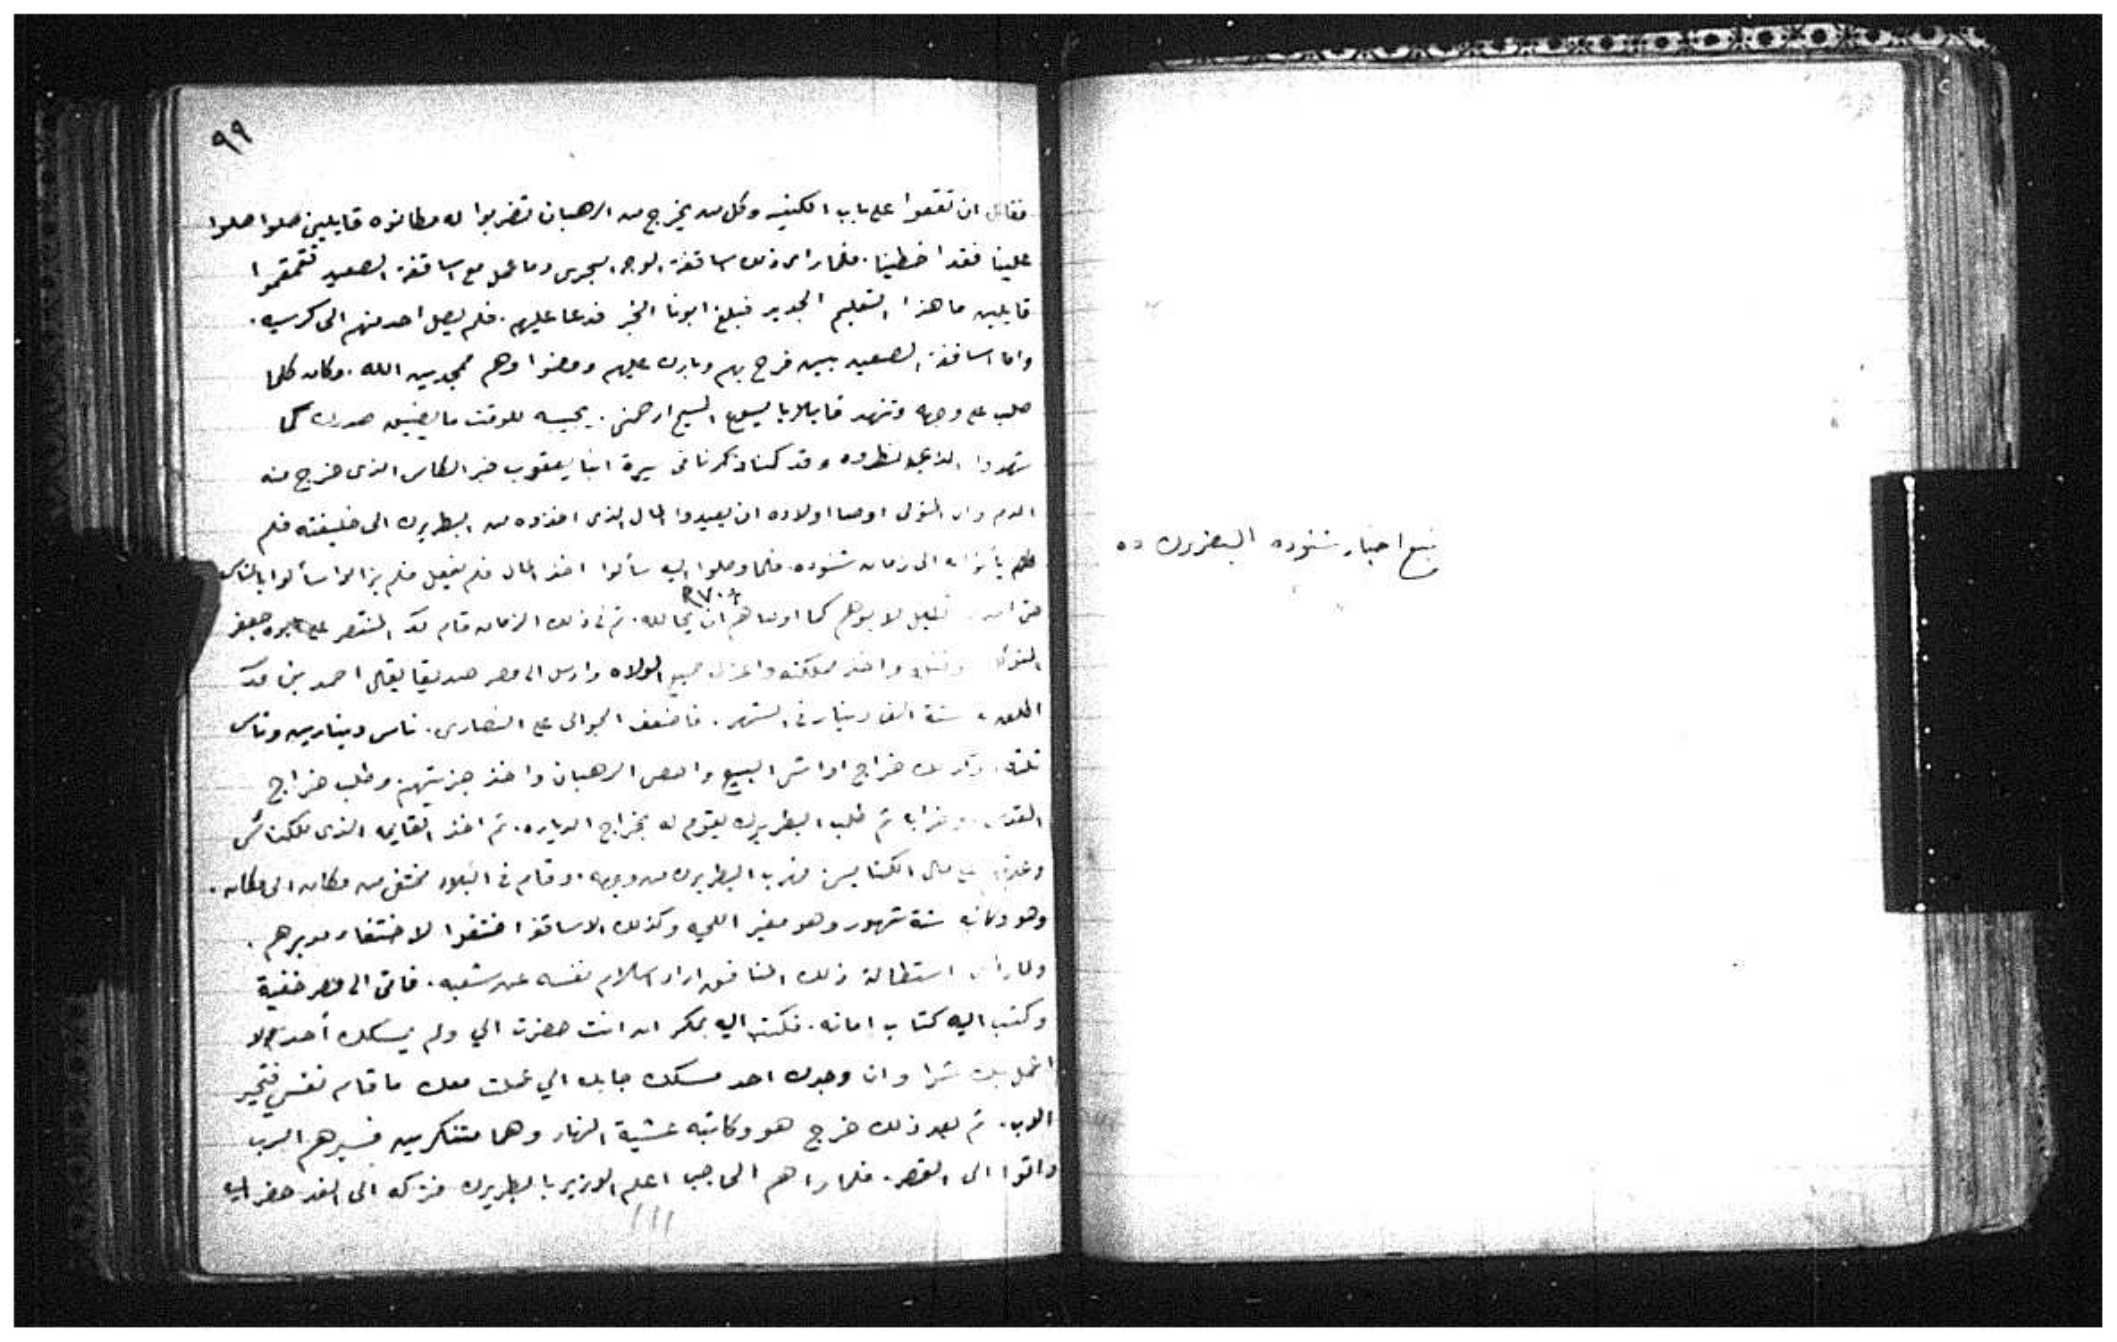 تبع اخبار شنوده البطريرك ٥٥
٩٩
فقال ان تقفوا على باب الكنيسه وكل من يخرج من الرهبان تضربوا له مطانوه قايلين صلوا صلوا
علينا فقد اخطينا. فلما راى ذلك اساقفة الوجه البحرى وما عمل مع اساقفة الصعيد تقمقموا
قايلين ما هذا التعليم الجديد فبلغ ابونا الخبر فدعا عليهم. فلم يصل احد منهم الى كرسيه.
واما اساقفة الصعيد فرح بهم وبارك عليهم ومضوا وهم ممجدين الله. وكان كلما
صلب على وجهه وتنهد قايلا يا يسوع المسيح ارحمنى. يجيبه للوقت ما يضيق صدرك كما
شهدوا وقد كنا ذكرنا فى سيرة انبا يعقوب خبر الكاس الذى خرج منه
الدم وان المتولى اوصا اولاده ان يعيدوا المال الذى اخذوه من البطريرك الى خليفته فلم
الى زمان شنوده. فلما وصلوا اليه سألوا اخذ المال فلم يفعل فلم يزالوا سألوا بالناس
R٧٠٨
لابوهم كما اوصاهم ان يحالله. ثم فى ذلك الزمان قام المنتصر على جعفر
واخذ مملكته واعزل جميع الولاه وارسل الى مصر صديقا يقال احمد بن
ستة الف دينار فى الشهر. فاضعف الجوالى على النصارى. ناس دينارين وناس
تلته. خراج اواشى البيع واحصى الرهبان واخذ جزيتهم وطلب خراج
ثم طلب البطريرك ليقوم له بخراج الدياره. ثم اخذ القايم الذى للكنائس
مال الكنايس فهرب البطريرك من وجهه. وقام فى البلاد مختفى من مكان الى مكان.
وهو ستة شهور وهو مغير اللحيه وكذلك الاساقفه اختفوا لاختفاء مدبرهم.
ولما رأى استطالة ذلك المنافق اراد اسلام نفسه عن شعبه. فاتى الى مصر خفية
وكتب اليه كتاب امانه. فكتب اليه بمكر ان انت حضرت الي ولم يمسكك أحد لا
اعمل بك شرا وان وجدك احد مسكك جابك الي عملت معك ما قام نفسي فتحير
الاب. ثم بعد ذلك خرج هو وكاتبه عشية النهار وهما متنكرين فسيرهم الرب
واتوا الى القصر. فلما راهم الحاجب اعلم الوزير بالبطريرك فتركه الى الغد حضر اليه
١١١